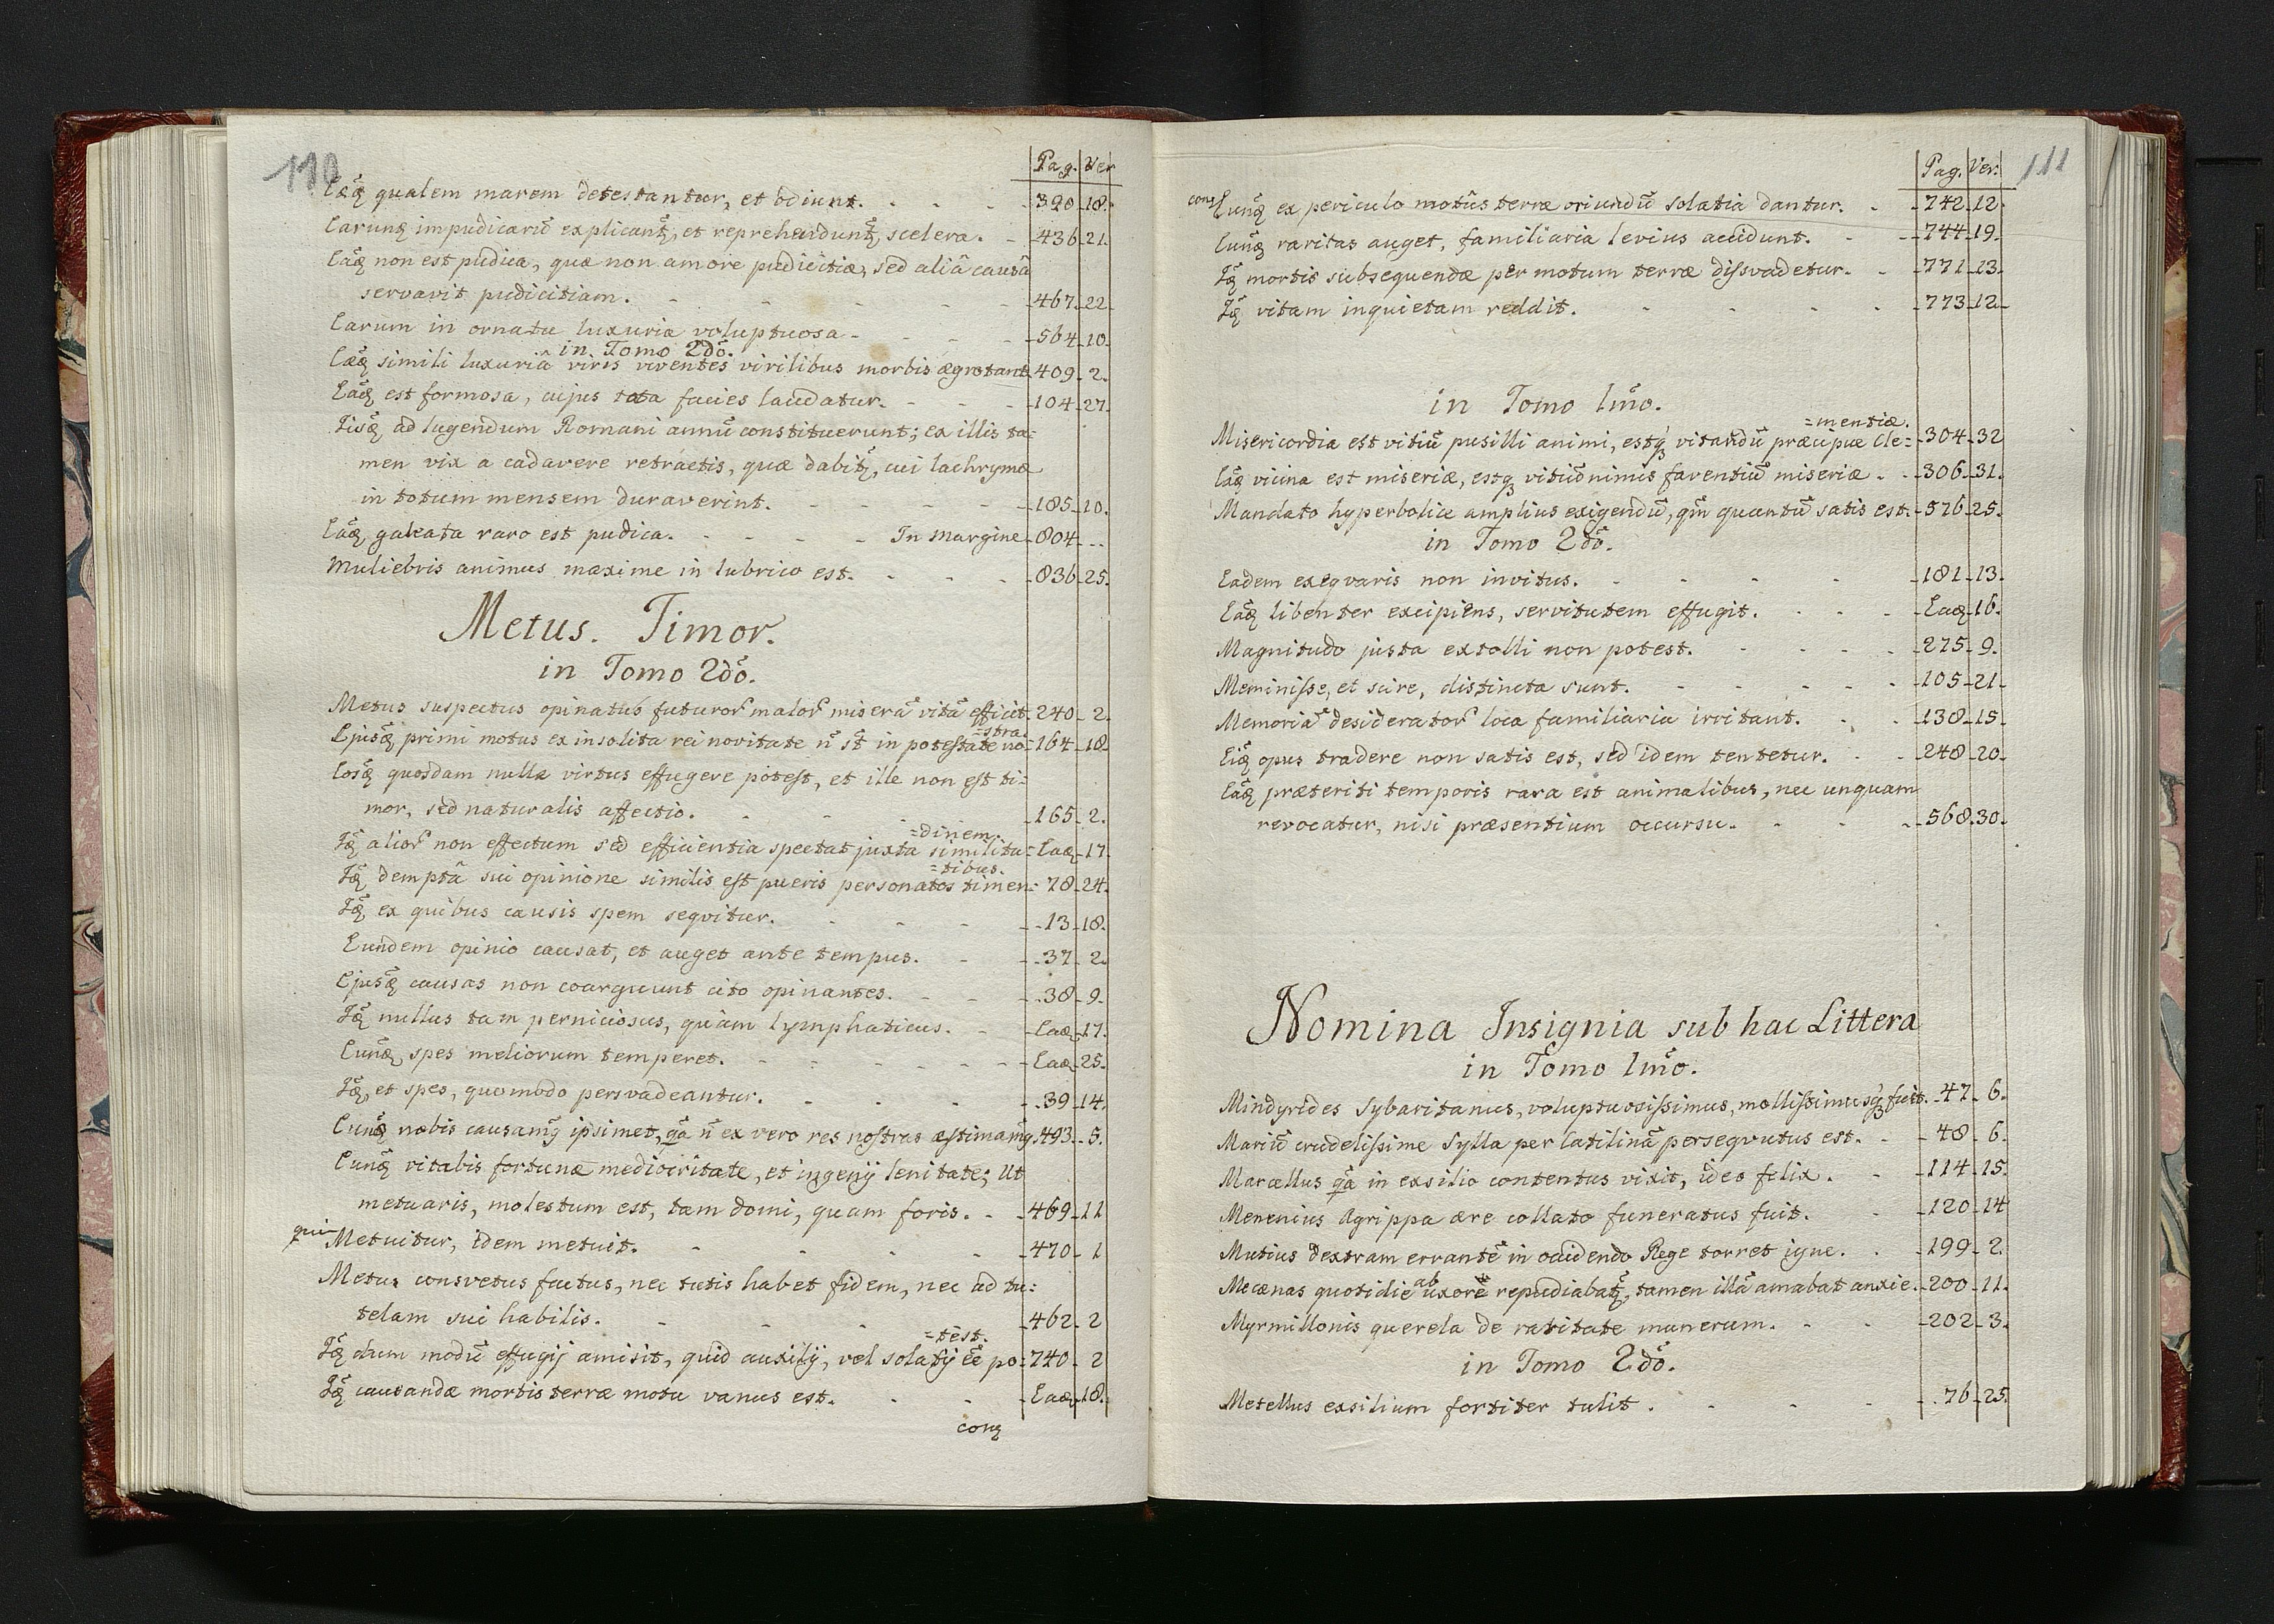 110
Pag. Ver
Eaeq̃ qualem marem detestantur, et odiunt. 320. 18.
Earunq̃ impudicarũ explicantq̃, et reprehenduntq̃, scelera. 436. 21.
Eaq̃ non est pudica, quæ non amore pudicitiæ, sed aliâ causâ
servavit pudicitiam. 467. 22
Earum in ornatu luxuria voluptuosa. 564. 10.
in Tomo 2dõ.
Eæq̃ simili luxuriâ viris viventes virilibus morbis ægrotant. 409. 2.
Eaq̃ est formosa, cujus tota facies laudatur. 104. 27.
Iisq̃ ad lugendum Romani annũ constituerunt; ex illis ta=
men vix a cadavere retractis, quæ dabitq̃, cui lachrymæ
in totum mensem duraverint. 185. 10.
Eaq̃ galeata raro est pudica. In margine 804. ..
Muliebris animus maxime in lubrico est. 836. 25.
Metus. Timor.
in Tomo 2dõ.
Metus suspectus opinatus futuror̃ malor̃ miserã vitã efficit. 240. 2.
=stra.
Ejusq̃ primi motus ex insolita rei novitate ñ st̃ in potestate no= 164. 18.
Eosq̃ quosdam nulla virtus effugere potest, et ille non est ti=
mor, sed naturalis affectio. 165. 2.
=dinem.
Iq̃ alior̃ non effectum sed efficientia spectat juxta similitu= Eaq̃. 17.
=tibus.
Iq̃ demptâ sui opinione similis est pueris personatos timen= 78. 24.
Iq̃ ex quibus causis spem seqvitur. 13. 18.
Eundem opinio causat, et auget ante tempus. 37. 2.
Ejusq̃ causas non coarguunt cito opinantes. 38. 9.
Iq̃ nullus tam perniciosus, quàm lymphaticus. Eaq̃. 17.
Eunq̃ spes meliorum temperet. Eaq̃. 25.
Iq̃, et spes, quomodo persvadeantur. 39. 14.
Eunq̃ nobis causamq̃ ipsimet, qã ñ ex vero res nostras æstimamq̃. 493. 5.
Eunq̃ vitabis fortunæ mediocritate, et ingenij lenitate; Ut
metuaris, molestum est, tam domi, quam foris. 469. 11
qui Metuitur, idem metuit. 470. 1
Metus consvetus factus, nec tutis habet fidem, nec ad tu=
telam sui habilis. 462. 2
=test.
Iq̃ dum modũ effugij amisit, quid auxilij, vel solatij eẽ po= 740. 2
Iq̃ causandæ mortis terræ motu vanus est. Eaq̃. 18.
conq̃
111
Pag. Ver.
conq̃ Eunq̃ ex periculo motûs terræ oriundũ solatia dantur. 742. 12
Eunq̃ raritas auget, familiaria levius accidunt. 744. 19.
Iq̃ mortis subsequendæ per motum terræ dissvadetur. 771. 13.
Iq̃ vitam inquietam reddit. 773. 12
in Tomo 1mõ.
=mentiæ.
Misericordia est vitiũ pusilli animi, estq̃ vitandũ præcipuæ Cle= 304. 32
Eaq̃ vicina est miseriæ, estq̃ vitiũ nimis faventiũ miseriæ. 306. 31.
Mandato hyperbolice amplius exigendũ, qm̃ quantũ satis est. 576. 25.
in Tomo 2dõ.
Eadem exeqvaris non invitus. 181. 13.
Eaq̃ libenter excipiens, servitutem effugit. Eaq̃ 16.
Magnitudo justa extolli non potest. 275. 9.
Meminisse, et scire, distincta sunt. 105. 21.
Memoriã desiderator̃ loca familiaria irritant. 138. 15.
Eiq̃ opus tradere non satis est, sed idem tentetur. 248. 20.
Eaq̃ præteriti temporis rara est animalibus, nec unquam
revocatur, nisi præsentium occursu. 568. 30.
Nomina Insignia sub hac Littera
in Tomo 1mõ.
Mindyrides Sybaritanus, voluptuosissimus, mollissimusq̃ fuit. 47. 6.
Mariũ crudelissime Sylla per Catilinã perseqvutus est. 48. 6.
Marcellus qã in exsilio contentus vixit, ideo felix. 114. 15.
Menenius Agrippa ære collato funeratus fuit. 120. 14
Mutius dextram errantẽ in occidendo Rege torret igne. 199. 2.
Mecænas quotidie ab uxorẽ repudiabatq̃, tamen illã amabat anxie. 200. 11.
Myrmillonis querela de raritate munerum. 202. 3.
in Tomo 2dõ.
Metellus exsilium fortiter tulit. 76. 25.